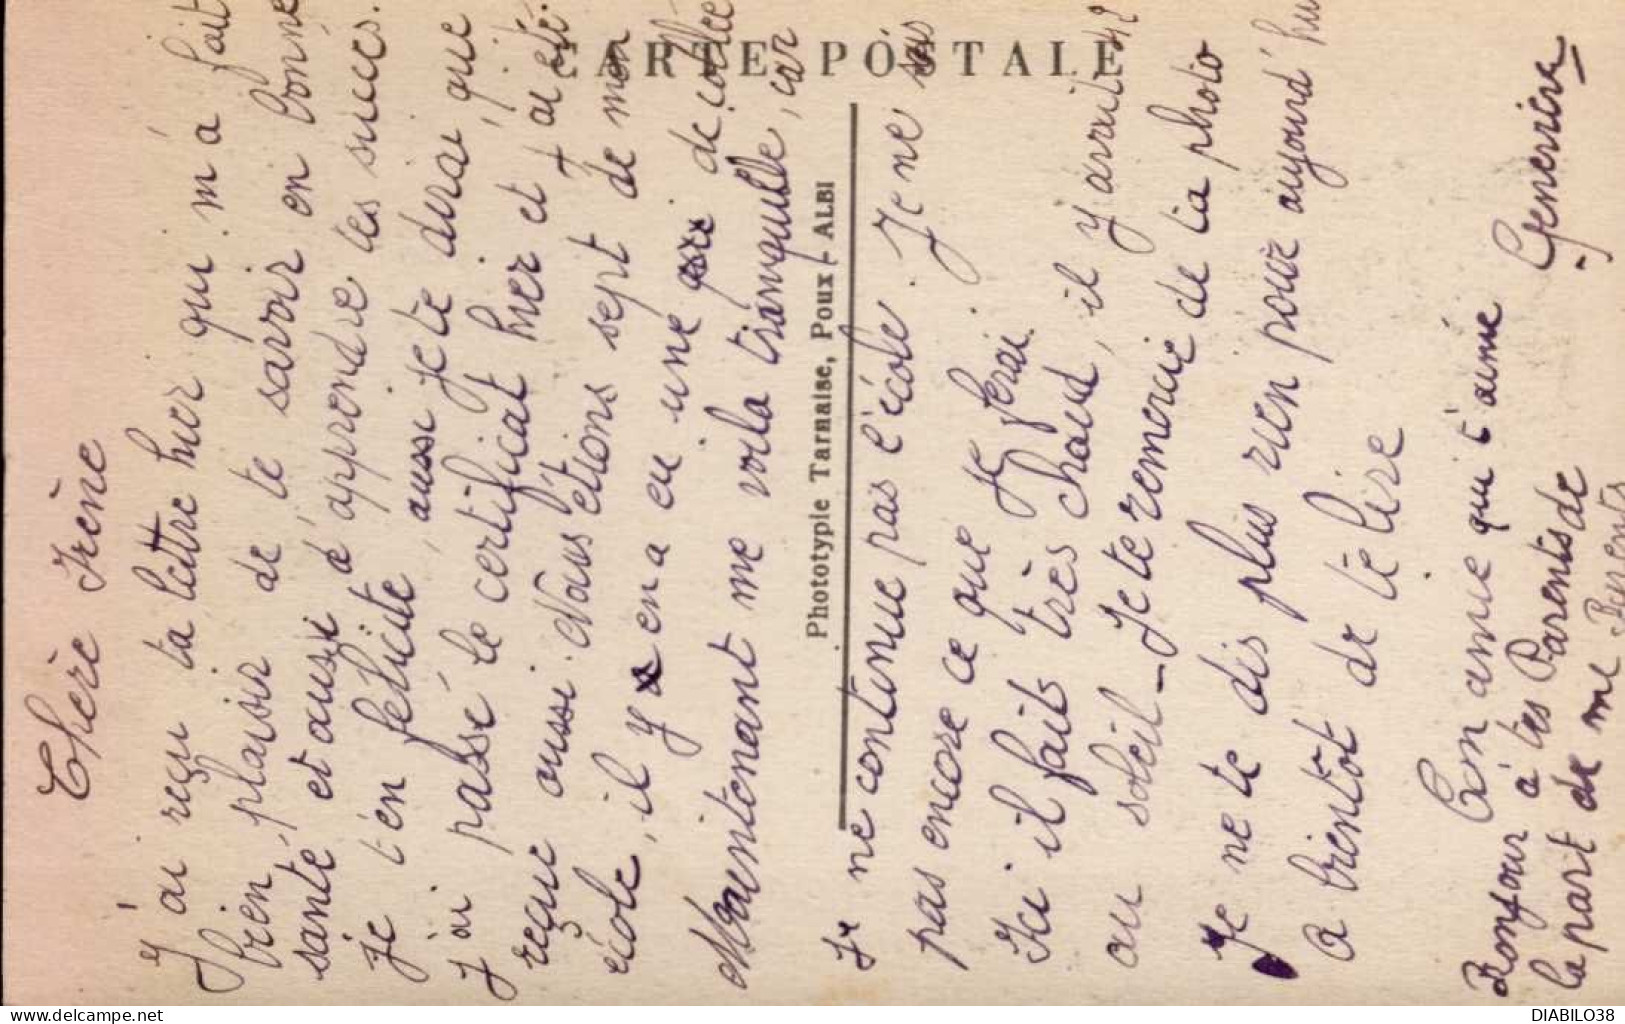 Chère Irène
J'ai reçu ta lettre hier qui m'a fait
bien plaisir de te savoir en bonne
santé et aussi d'apprendre tes succès.
Je t'en félicite, aussi je te dirai que
j'ai passé le certificat hier et j'ai été
reçue aussi. Nous étions sept de mon
école, il y en a eu une de collée
Maintenant me voila tranquille, car
je ne continue pas l'école. Je ne sais
pas encore ce que je ferai.
Ici il fait très chaud, il y avait 42
au soleil - Je te remercie de ta photo
Je ne te dis plus rien pour aujourd'hui
A bientôt de te lire
Ton amie qui t'aime
Geneviève
Bonjour à tes Parents de
la part de me Parents
CARTE POSTALE
Phototypie Tarnaise, Poux - ALBI
delcampe.net
DIABILO38